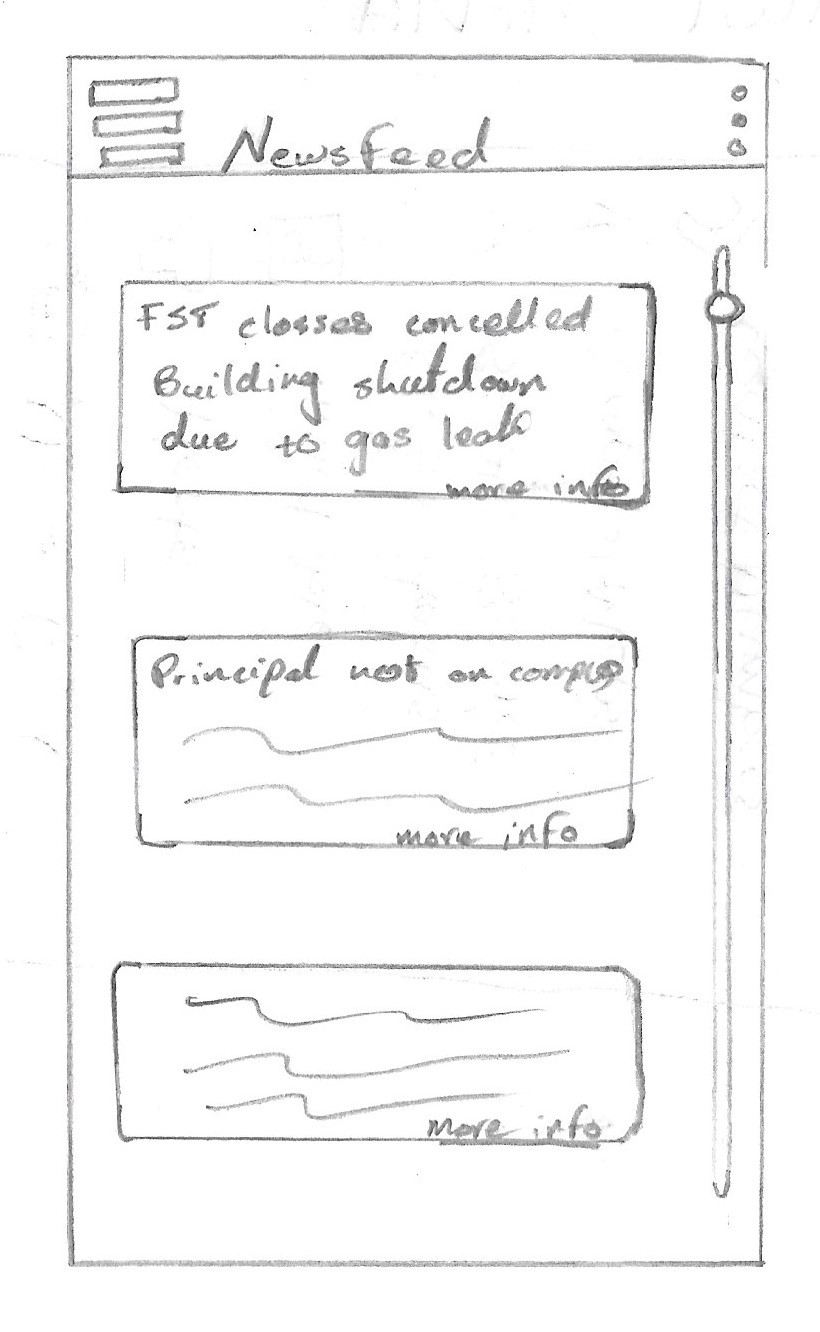 Newsfeed
FST classes cancelled
Building shutdown
due to gas leak
more info
Principal not on campus
more info
more info